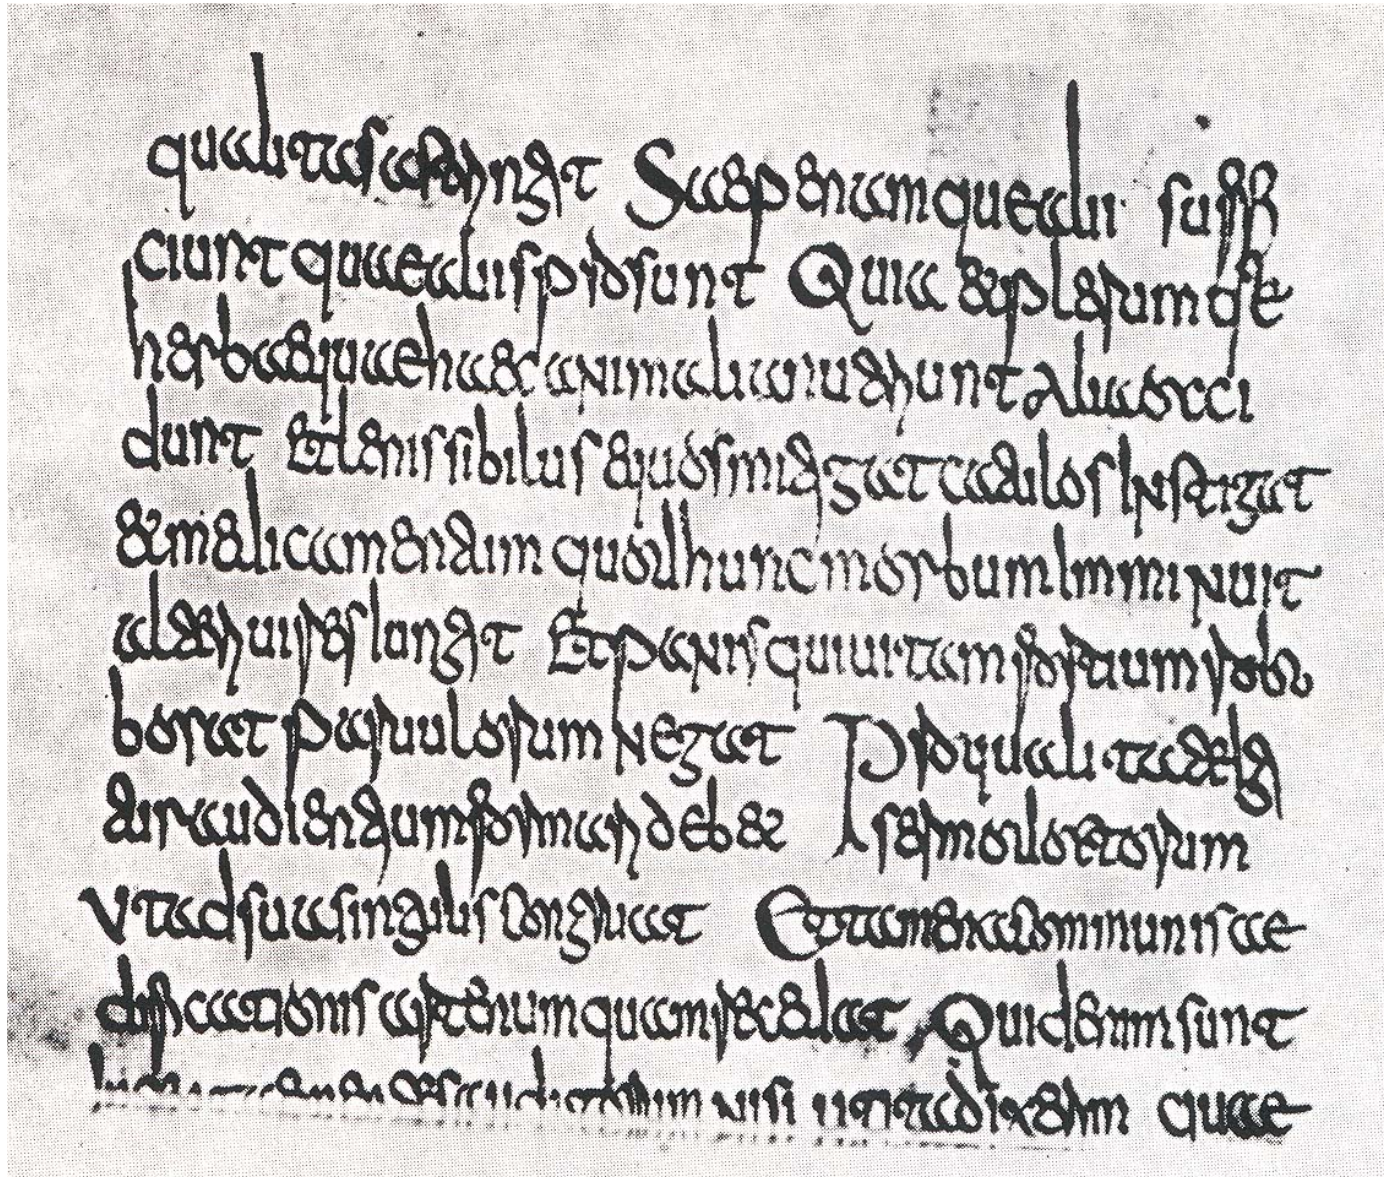 qualitas astringat Saepe enim quae alii suffi
ciunt quae aliis prosunt Quia et plerumque
herbae quae haec animalia nutriunt alia occi
dunt Et lenis sibilus equos mitigat catulos Instigat
et medicamentum quod hunc morbum Imminuit
alteri uires iungat Et panis qui uitam fortium rob
borat paruulorum negat Pro qualitate
audientium formari debet sermo doctorum
Ut ad sua singulis congruat Et tamen a communis ae
dificationis arte numquam recedat Quid enim sunt
auditorum nisi ut ita dixerim quae